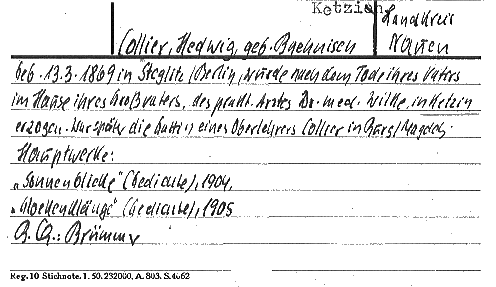 Ketzin
Landkreis
Nauen
Collier, Hedwig, geb. Baehnisch
geb. 13.3.1869 in Steglitz/Berlin, wurde nach dem Tode ihres Vaters
im Hause ihres Großvaters, des prakt. Arztes Dr. med. Wilke, in Ketzin
erzogen. War später die Gattin eines Oberlehrers Collier in Burg/Magdeb.
Hauptwerke:
„Sonnenblicke" (Gedichte), 1904,
„Glockenklänge" (Gedichte), 1905
Brümmer
Reg. 10 Stichnote. 1. 50. 232000, A. 803. S. 4662